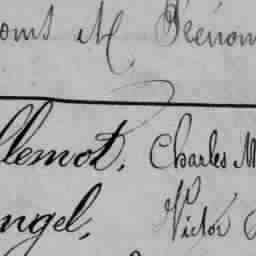 oms et Prénom
llemot, Charles M
ngel, Victor